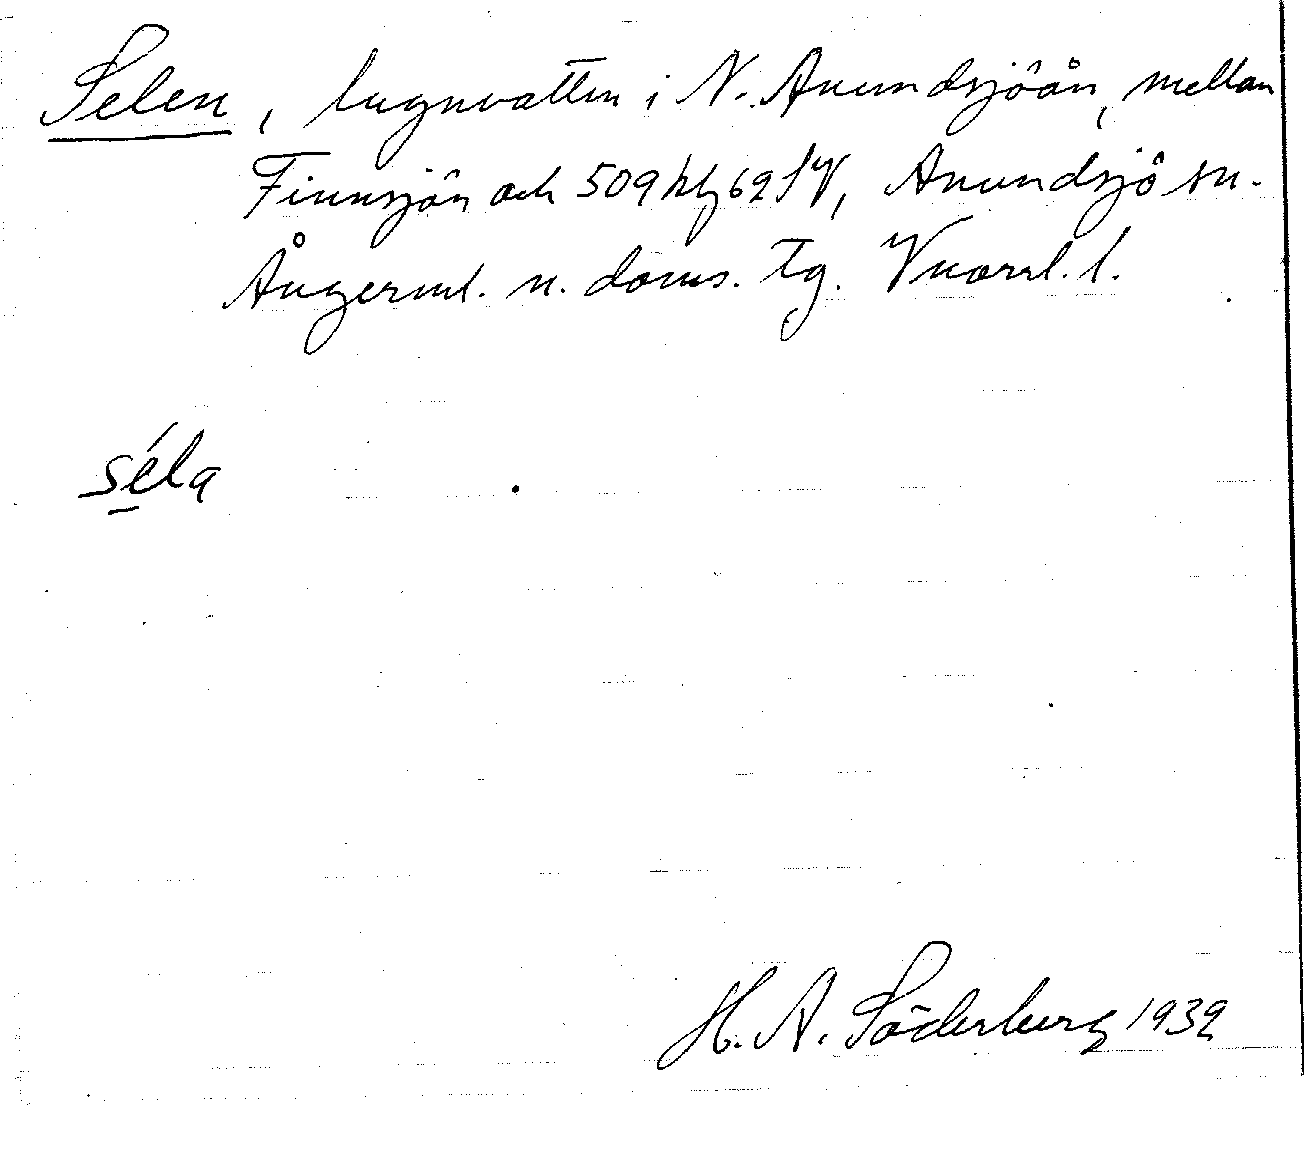 Selen, lugnvatten i N. Anundsjöån, mellan
Finnsjön och 509 hlg 62 SV, Anundsjö sn.
Ångerml. n. doms. tg. Vnorrl. l.
séla
H. A. Söderberg 1939